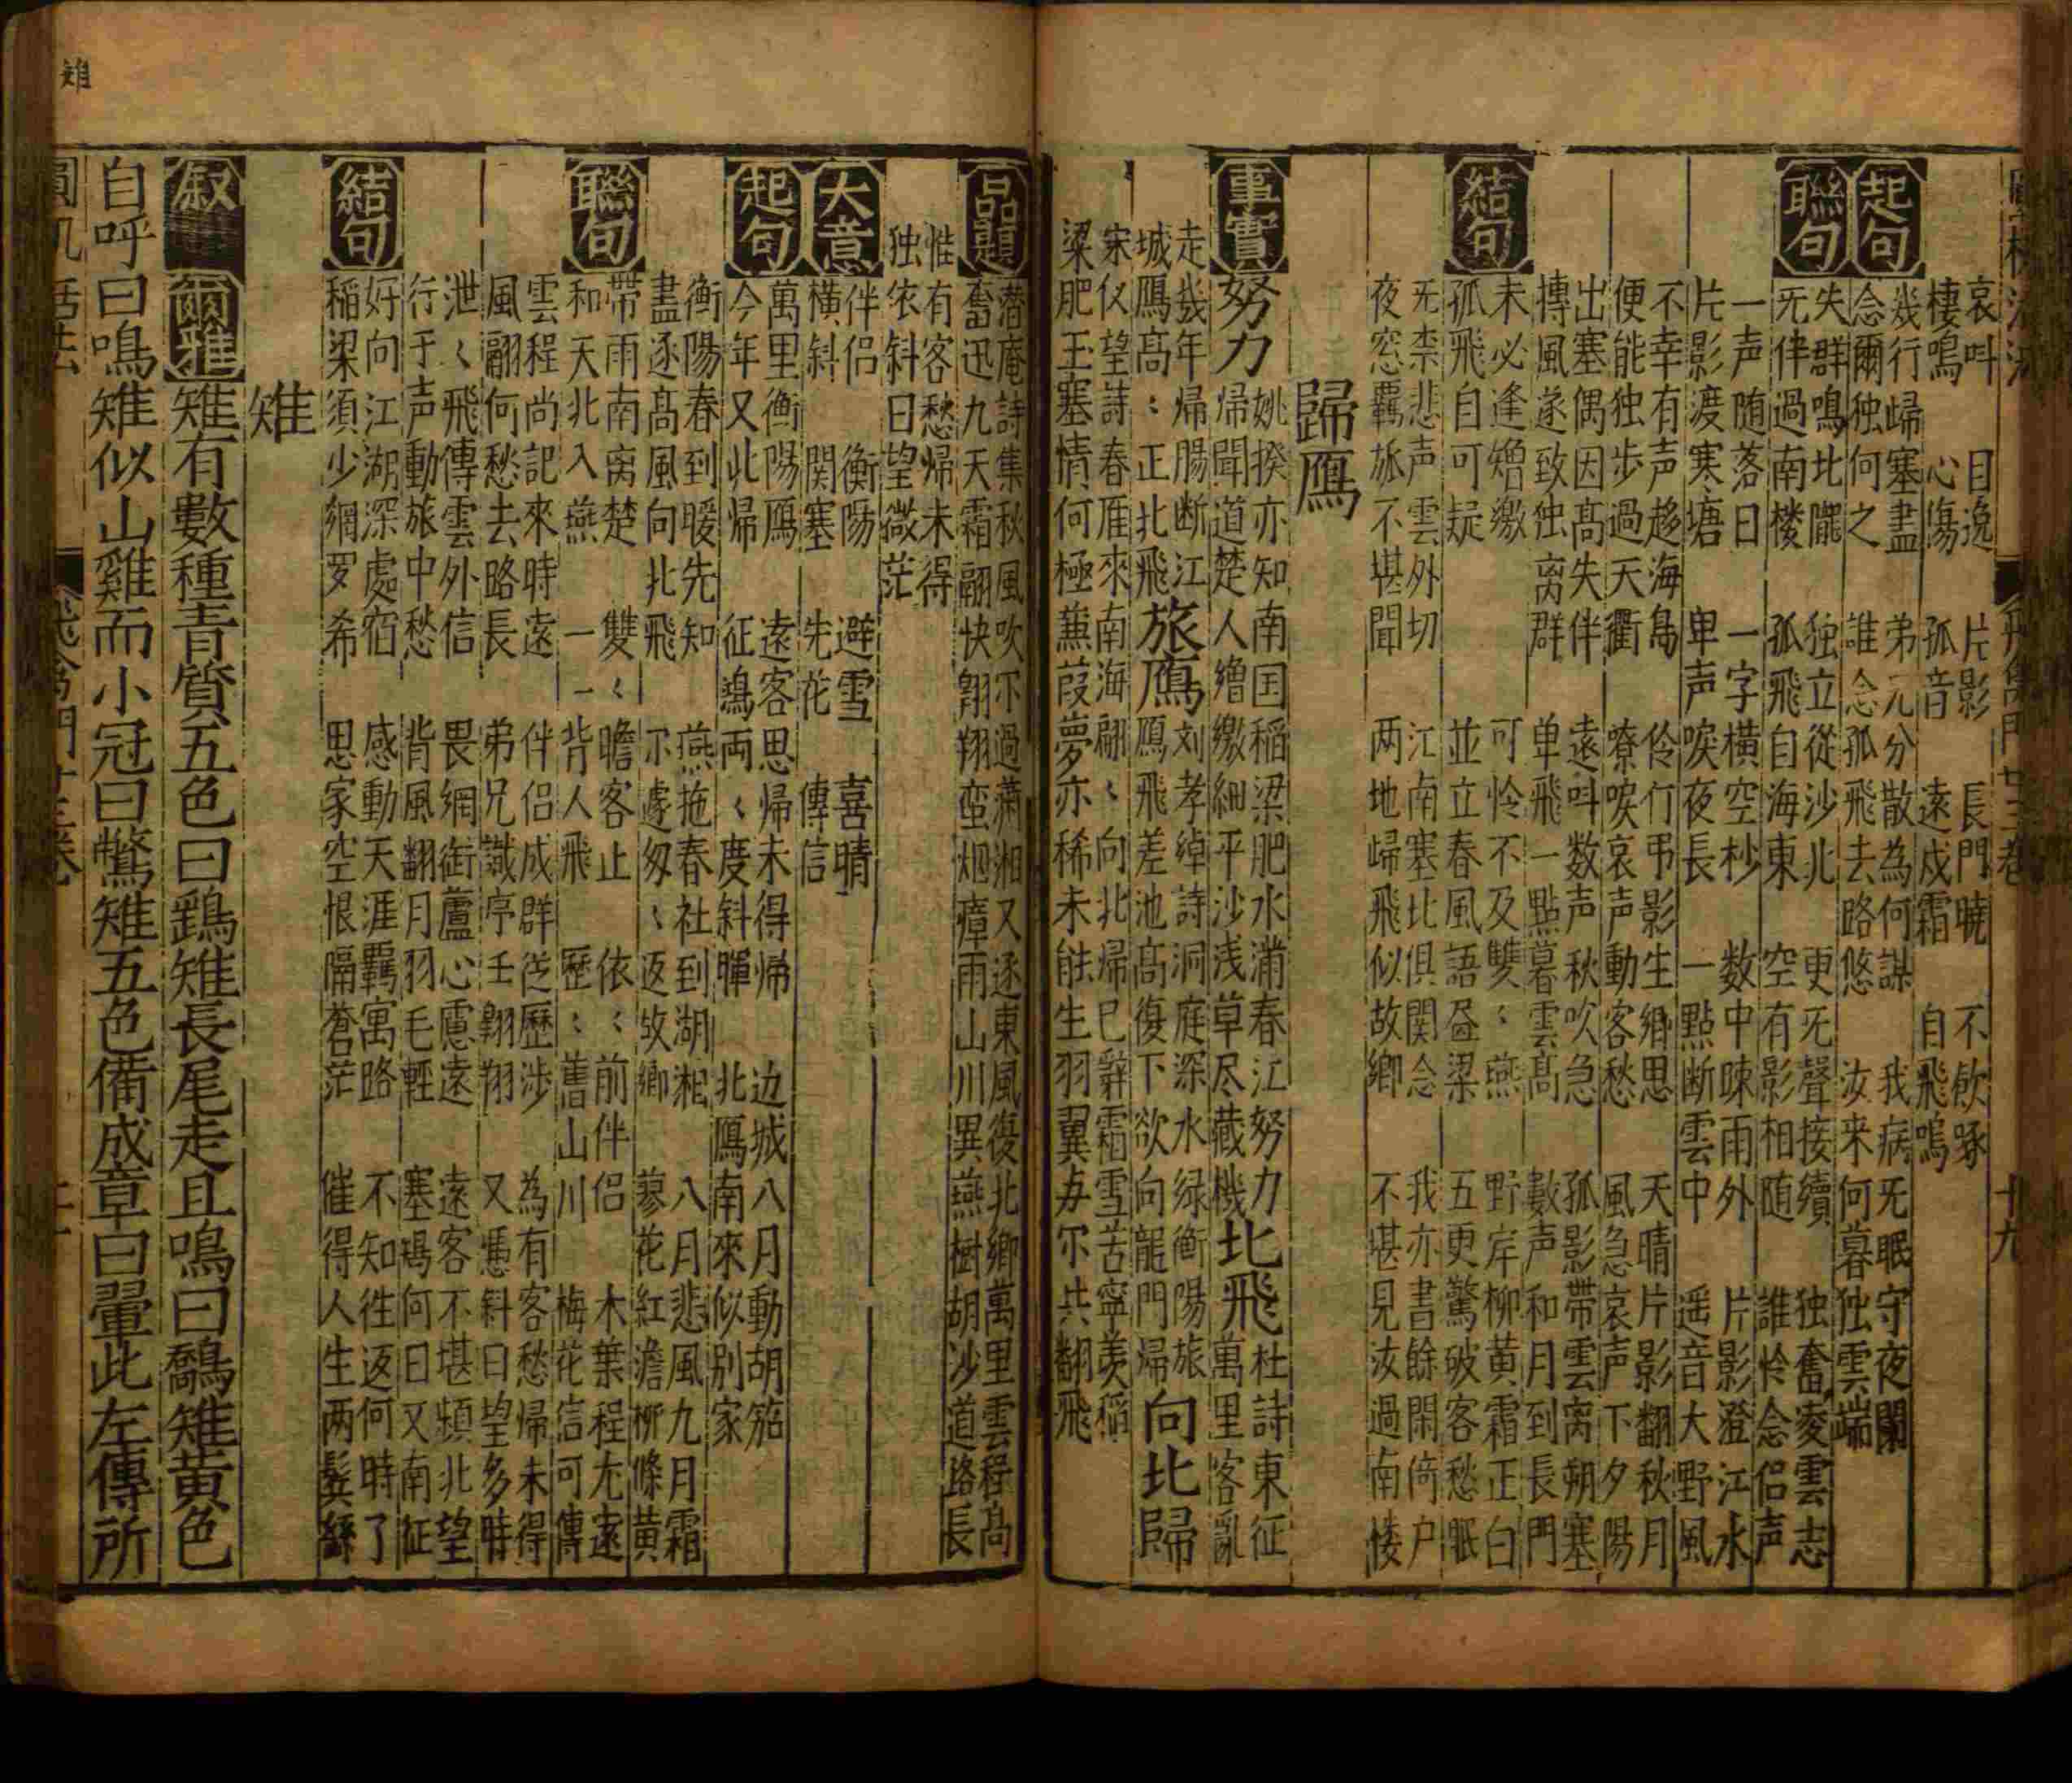 圓機活法 飛禽門廿三卷 十九
哀呌 目逸 片影 長門曉 不飲啄
棲鳴 心傷 孤音 遠戍霜 自飛鳴
起句 幾行歸塞盡 弟兄分散為何謀 我病旡眠守夜闌
念爾独何之 誰念孤飛去路悠 汝来何暮独雲端
聯句 失群鳴北隴 独立從沙北 更旡聲接續 独奮凌雲志
旡伴過南楼 孤飛自海東 空有影相随 誰怜念侣声
一声随落日 一字横空杪 数中暕雨外 片影澄江水
片影渡寒塘 卑声唳夜長 一點断雲中 遥音大野風
不幸有声趍海島 伶仃弔影生鄉思 天晴片影翻秋月
便能独步過天衢 嘹唳哀声動客愁 風急哀声下夕陽
出塞偶因髙失伴 遠呌数声秋吹急 孤影帶雲离朔塞
摶風遂致独离群 单飛一點暮雲髙 數声和月到長門
結句 未必逢矰繳 可怜不及雙〻燕 野岸柳黄霜正白
孤飛自可疑 並立春風語畫梁 五更驚破客愁眠
旡柰悲声雲外切 江南塞北俱関念 我亦書餘閑倚户
夜窓羈旅不堪聞 两地歸飛似故鄉 不堪見汝過南楼
歸鴈
事實 努力 姚揆亦知南国稻梁肥水滿春江努力
帰聞道楚人繒繳細平沙浅草尽藏機 北飛 杜詩東征
萬里客亂
走幾年帰腸断江
城鴈髙〻正北飛 旅鴈 刘孝绰詩洞庭深水绿衡陽旅
鴈飛差池髙復下欲向龍門帰 向北歸
宋仅望詩春雁來南海翩〻向北帰巳辭霜雪苦寧羡稻
梁肥玉塞情何極蒹葭夢亦稀未能生羽翼与尔共翻飛
品題 潜庵詩集秋風吹不過瀟湘又逐東風復北鄉萬里雲程髙
奮迅九天霜翮快翱翔蛮烟瘴雨山川異燕樹胡沙道路長
惟有客愁帰未得
独依斜日望微茫
大意 伴侣 衡陽 避雪 喜晴
横斜 関塞 先花 傳信
起句 萬里衡陽鴈 遠客思帰未得帰 边城八月動胡笳
今年又北帰 征鴻两〻度斜暉 北鴈南來似别家
衡陽春到暖先知 燕拖春社到湖湘 八月悲風九月霜
盡逐髙風向北飛 不遽匆〻返故鄉 蓼花紅澹柳條黃
聯句 帶雨南离楚 雙〻瞻客止 依〻前伴侣 木葉程尢遠
和天北入燕 一一背人飛 歷〻舊山川 梅花信可傳
雲程尚記來時遠 伴侣成群從歷涉 為有客愁帰未得
風翮何愁去路長 弟兄識序任翱翔 又憑斜日望多時
泄〻飛傳雲外信 畏網銜蘆心慮遠 遠客不堪頻北望
行于声動旅中愁 背風翻月羽毛輕 塞鴻何日又南征
結句 好向江湖深處宿 感動天涯羈寓路 不知往返何時了
稻梁須少網罗希 思家空恨隔蒼茫 催得人生两鬂絲
雉
叙 爾雅 雉有數種青質五色曰鷂雉長尾走且鳴曰鷮雉黄色
自呼曰鳴雉似山雞而小冠曰鷩雉五色備成章曰翬此左傳所
雉